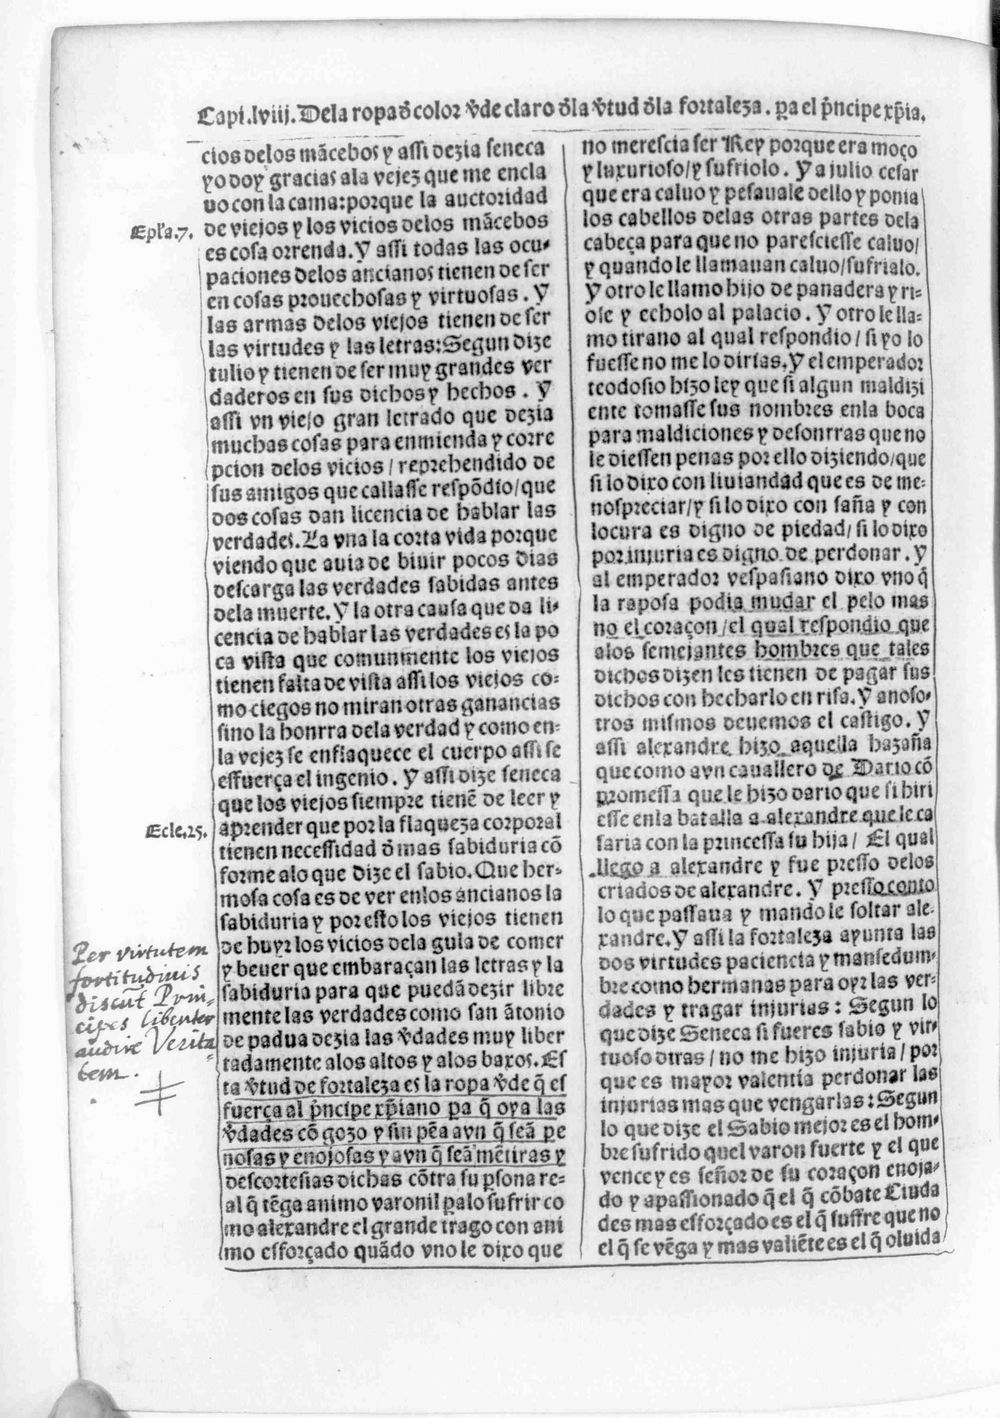 Capi.lviij. Dela ropa d̃ color v̓de claro d̓la v̓tud d̓la fortaleza. ꝑa el pͥncipe xp̃ia.
cios delos mãcebos y assi dezia seneca
yo doy gracias ala vejez que me encla
uo con la cama:porque la auctoridad
Epl'a.7.
de viejos y los vicios delos mãcebos
es cosa orrenda. Y assi todas las ocu-
paciones delos ancianos tienen de ser
en cosas prouechosas y virtuosas. Y
las armas delos viejos tienen de ser
las virtudes y las letras:Segun dize
tulio y tienen de ser muy grandes ver
daderos en sus dichos y hechos. Y
assi vn viejo gran letrado que dezia
muchas cosas para enmienda y corre
pcion delos vicios / reprehendido de
sus amigos que callasse respõdio/que
dos cosas dan licencia de hablar las
verdades. La vna la corta vida porque
viendo que auia de biuir pocos dias
descarga las verdades sabidas antes
dela muerte. Y la otra causa que da li-
cencia de hablar las verdades es la po
ca vista que comunmente los viejos
tienen falta de vista assi los viejos co-
mo ciegos no miran otras ganancias
sino la honrra dela verdad y como en-
la vejez se enflaquece el cuerpo assi se
effuerça el ingenio. Y assi dize seneca
que los viejos siempre tienẽ de leer y
Ecle.25.
aprender que por la flaqueza corporal
tienen necessidad d̃ mas sabiduria cõ
forme alo que dize el sabio. Que her-
mosa cosa es de ver enlos ancianos la
sabiduria y por esto los viejos tienen
de huyr los vicios dela gula de comer
y beuer que embaraçan las letras y la
sabiduria para que puedã dezir libre
mente las verdades como san ãtonio
de padua dezia las v̓dades muy liber
tadamente alos altos y alos baxos. Es
ta v̓tud de fortaleza es la ropa v̓de q̃ es
fuerça al pͥncipe xp̃iano ꝑa q̃ oya las
v̓dades cõ gozo y sin pẽa avn q̃ seã pe
nosas y enojosas y avn q̃ seã mẽtiras y
descortesias dichas cõtra su ꝑsona re-
al q̃ tẽga animo varonil ꝑa lo sufrir co
mo alexandre el grande trago con ani
mo esforçado quãdo vno le dixo que
Per virtutem
fortitudinis
discũt Prin-
cipes libenter
audire Verita-
tem.
no merescia ser Rey porque era moço
y luxurioso/y sufriolo. Y a julio cesar
que era caluo y pesauale dello y ponia
los cabellos delas otras partes dela
cabeça para que no paresciesse caluo/
y quando le llamauan caluo/sufrialo.
Y otro le llamo hijo de panadera y ri-
ose y echolo al palacio. Y otro le lla-
mo tirano al qual respondio / si yo lo
fuesse no me lo dirias. Y el emperador
teodosio hizo ley que si algun maldizi
ente tomasse sus nombres enla boca
para maldiciones y desonrras que no
le diessen penas por ello diziendo/que
si lo dixo con liuiandad que es de me-
nospreciar/y si lo dixo con saña y con
locura es digno de piedad/ si lo dixo
por injuria es digno de perdonar. Y
al emperador vespasiano dixo vno q̃
la raposa podia mudar el pelo mas
no el coraçon/el qual respondio que
alos semejantes hombres que tales
dichos dizen les tienen de pagar sus
dichos con hecharlo en risa. Y anoso-
tros mismos deuemos el castigo. Y
assi alexandre hizo aquella hazaña
que como avn cauallero de Dario cõ
promessa que le hizo dario que si hiri
esse enla batalla a alexandre que le ca
saria con la princessa su hija/ El qual
llego a alexandre y fue presso delos
criados de alexandre. Y presso conto
lo que passaua y mando le soltar ale-
xandre. Y assi la fortaleza ayunta las
dos virtudes paciencia y mansedum-
bre como hermanas para oyr las ver-
dades y tragar injurias: Segun lo
que dize Seneca si fueres sabio y vir-
tuoso diras / no me hizo injuria / por
que es mayor valentia perdonar las
injurias mas que vengarlas:Segun
lo que dize el Sabio mejor es el hom-
bre sufrido quel varon fuerte y el que
vence y es señor de su coraçon enoja-
do y apassionado q̃ el q̃ cõbate Ciuda
des mas esforçado es el q̃ suffre que no
el q̃ se vẽga y mas valiẽte es el q̃ oluida